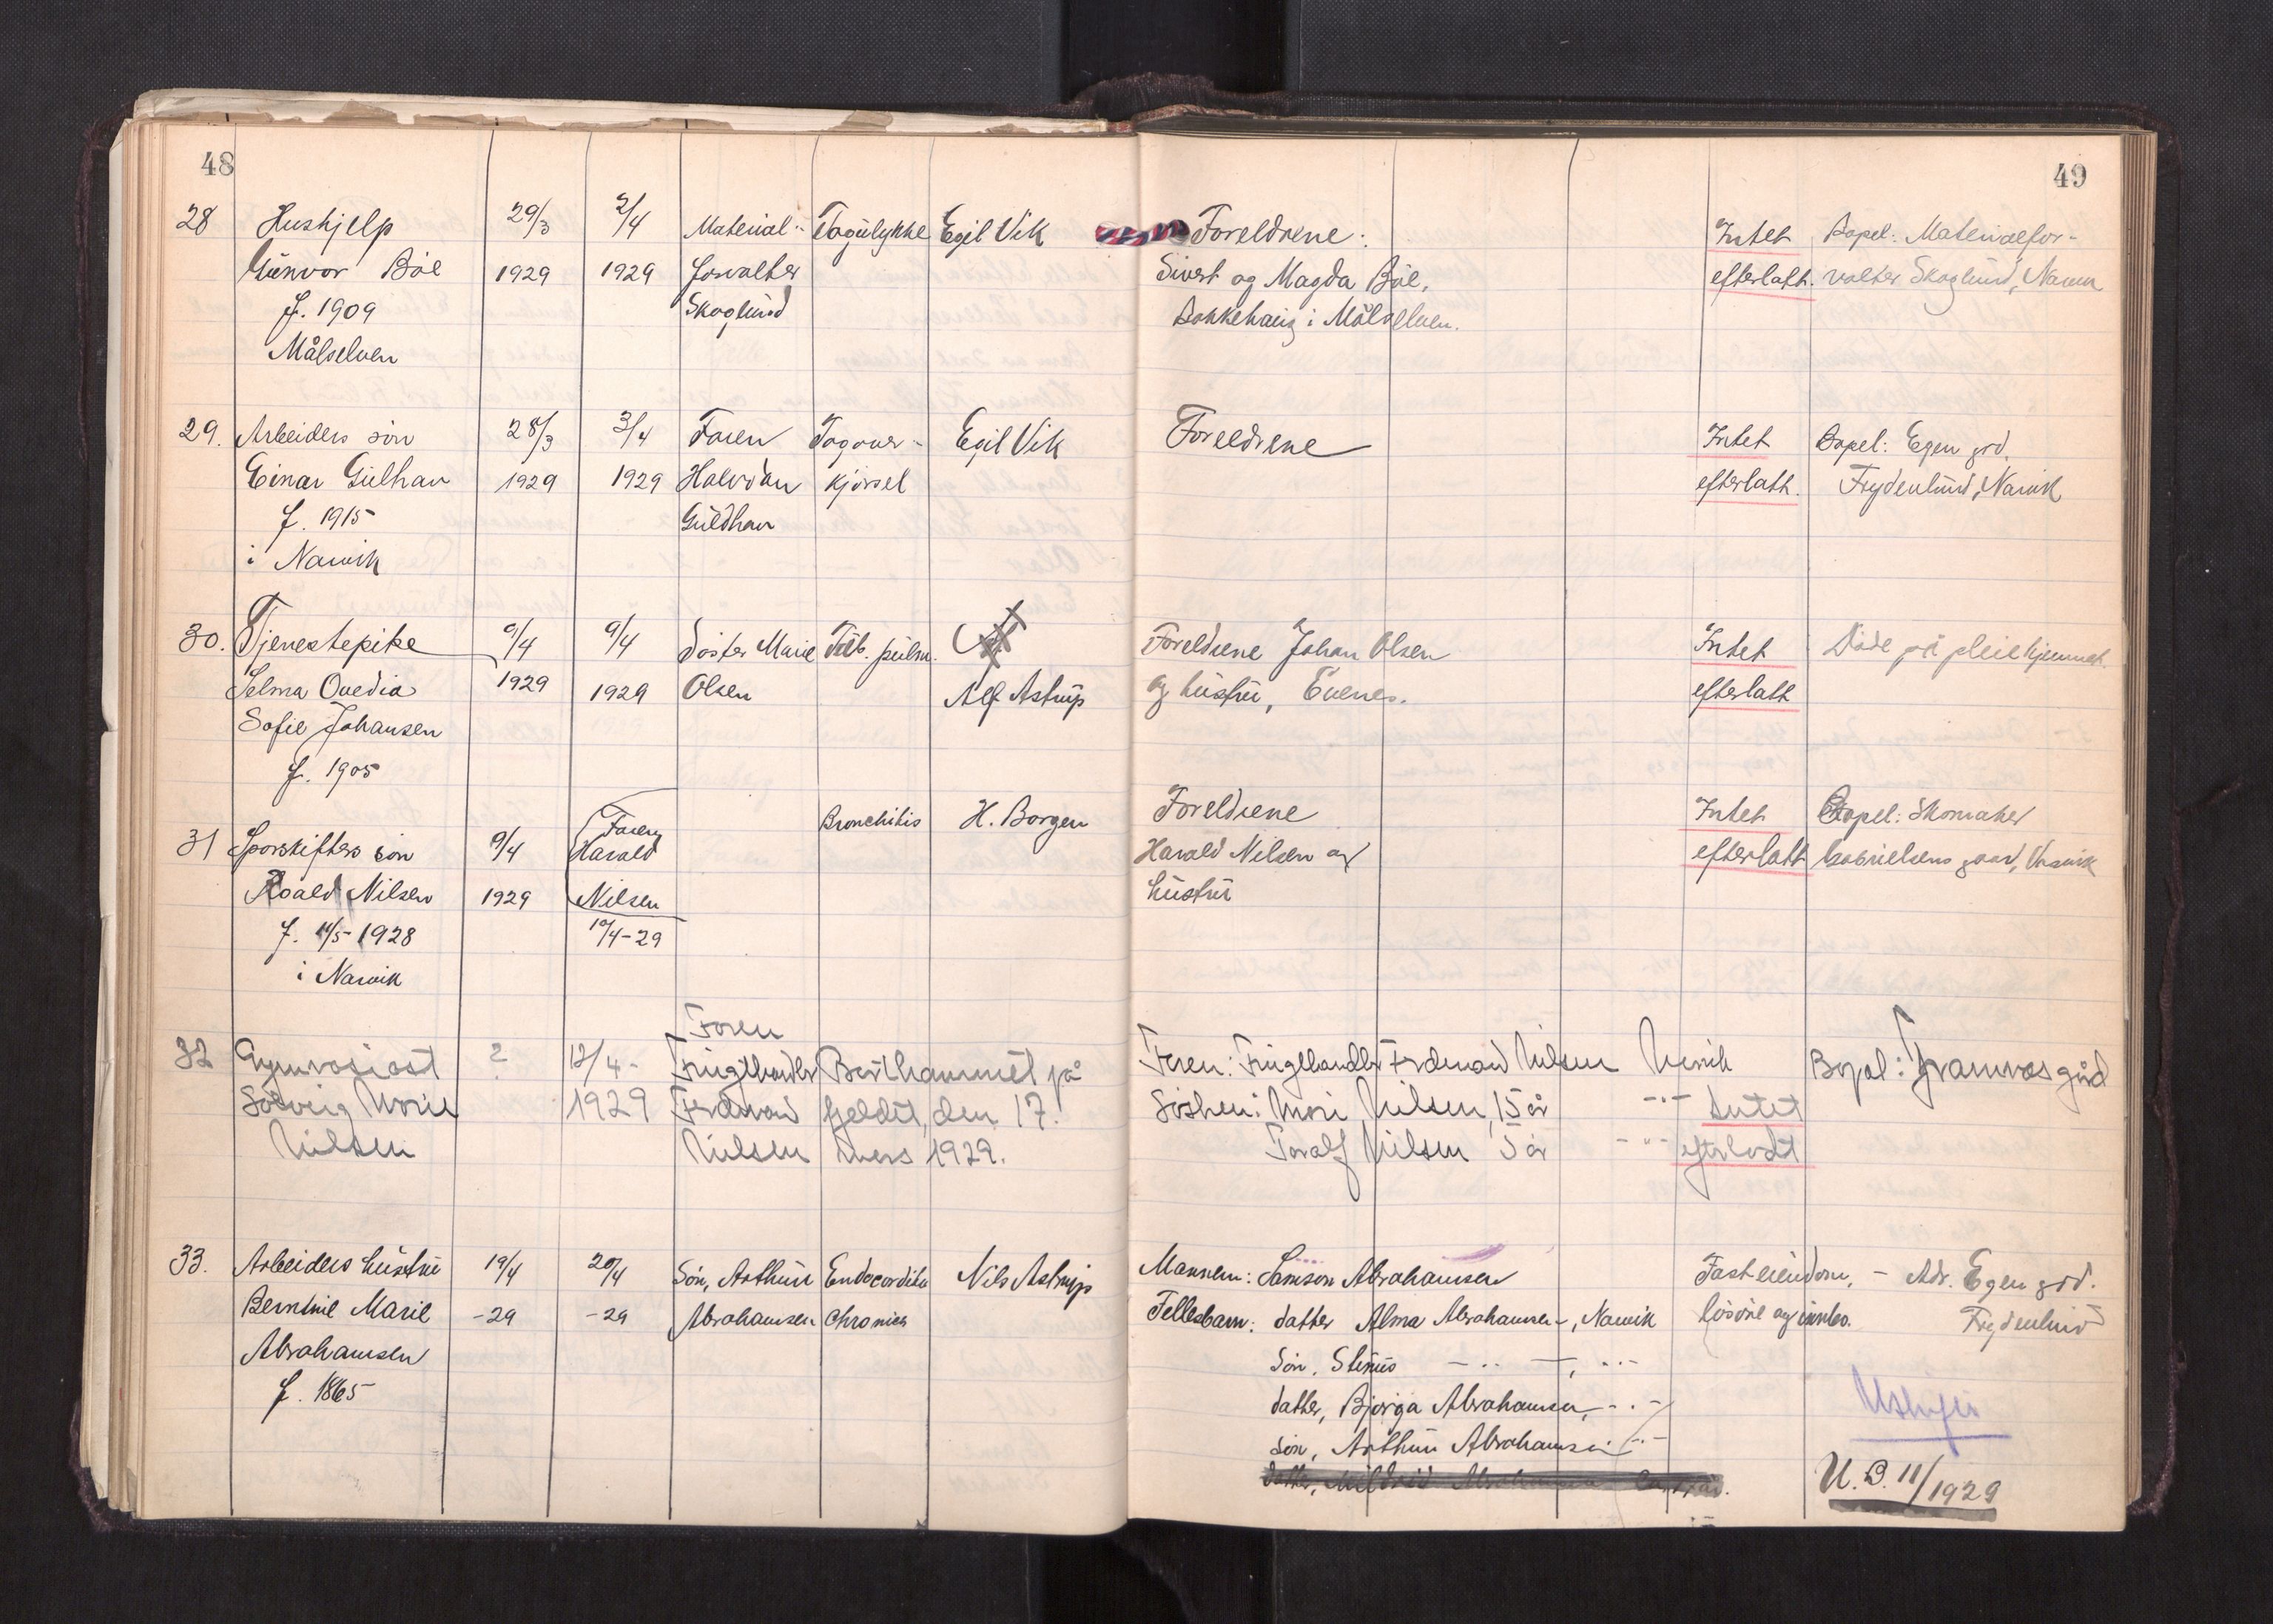 48
49
28 Hushjelp 29/3 2/4 Material- Togulykke Egil Vik Foreldrene: Intet Bopel: Materialfor-
Gunvor Bøe 1929 1929 forvalter Sivert og Magda Bøe, efterlatt. valter Skoglund, Narvik
f. 1909 Skoglund Bakkehaug i Målselven.
Målselven
29. Arbeiders søn 28/3 3/4 Faren Togover- Egil Vik Foreldrene Intet Bopel: Egen grd.
Einar Gulhav 1929 1929 Halvdan kjørsel efterlatt. Frydenlund, Narvik
f. 1915 Guldhav
i Narvik
30. Tjenestepike 9/4 9/4 Søster Marie Tub. pulm. Foreldrene Johan Olsen Intet Døde på pleiehjemmet
Selma Ovedia 1929 1929 Olsen Alf Astrup og hustru, Evenes. efterlatt
Sofie Johansen
f. 1905
31 Sporskifters søn 9/4 Faren Harald Bronchitis H. Borgen Foreldrene Intet Bopel: Skomaker
Roald Nilsen 1929 Nilsen Harald Nilsen og efterlatt Gabrielsens gaard, Narvik
f. 11/5-1928 10/4-29 hustru
i Narvik
32 Gymnasiast ? 12/4- Faren Faren: Frugthandler Ferdinand Nilsen Narvik Bopel: Framnæs gård
Solveig Marie 1929 Frugthandler Bortkommet på Søsken: Mari Nilsen, 15 år -"- Intet
Nilsen Ferdinand fjeldet, den 17. Toralf Nilsen 5 år -"- efterladt
Nilsen mars 1929.
33. Arbeiders hustru 19/4 20/4 Søn, Arthur Endocarditis Nils Astrup Mannen: Samson Abrahamsen Fasteiendom, - Adr. Egen grd.
Berntine Marie -29 -29 Abrahamsen Chronica Fellesbarn: datter Alma Abrahamsen, Narvik løsøre og innbo. Frydenlund
Abrahamsen Søn, -"- -"-
f. 1865 datter, Abrahamsen, -"-
Søn, Arthur Abrahamsen -"-
Uskifte
datter, Mildrid Abrahamsen
U.B. 11/1929